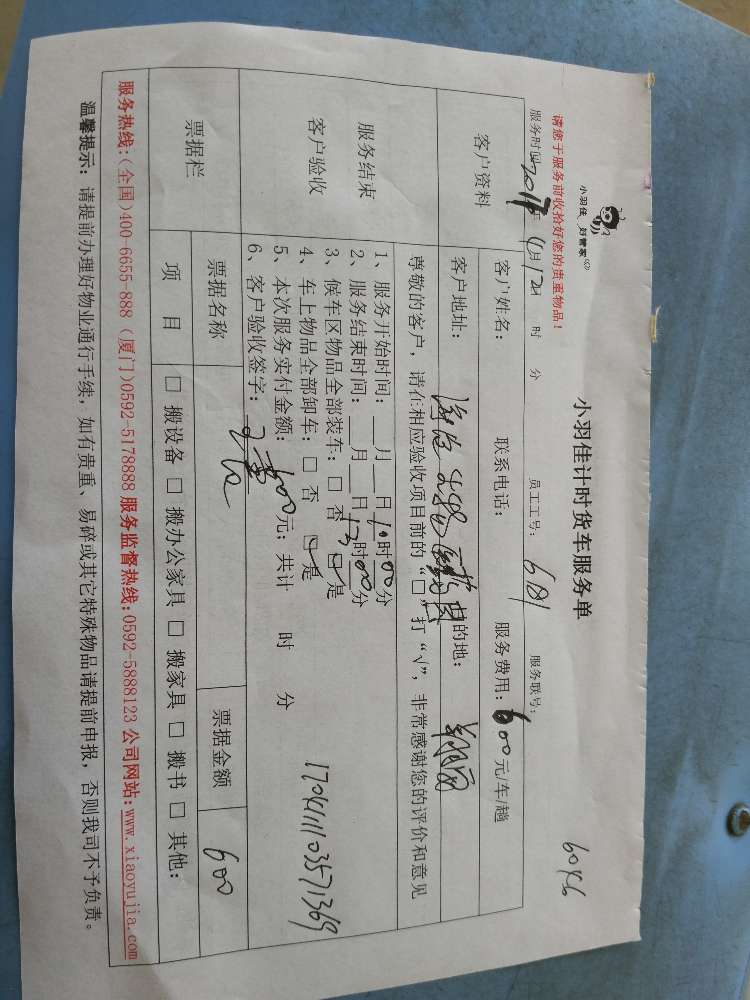 小羽佳 好管家
小羽佳计时货车服务单
6046
请您于服务前收拾好您的贵重物品！
服务时间 2017年4月12日 时 分 员工工号：6181 服务联号：
客户资料
客户姓名： 联系电话： 服务费用：600元/车/趟
客户地址： 的地：
尊敬的客户，请在相应验收项目前的“□”打“√”，非常感谢您的评价和意见
服务结束
客户验收
1、服务开始时间：__月__日10时00分
2、服务结束时间：__月__日13时00分
3、候车区物品全部装车：□ 否 ☑是
4、车上物品全部卸车：□ 否 ☑是
5、本次服务实付金额：600元；共计 时 分
6、客户验收签字：
170411103571369
票据栏
票据名称 票据金额 600
项 目 □ 搬设备 □ 搬办公家具 □ 搬家具 □ 搬书 □ 其他：
服务热线：(全国)400-6655-888 (厦门)0592-5178888 服务监督热线：0592-5888123 公司网站：www.xiaoyujia.com
温馨提示：请提前办理好物业通行手续，如有贵重、易碎或其它特殊物品请提前申报，否则我司不予负责。